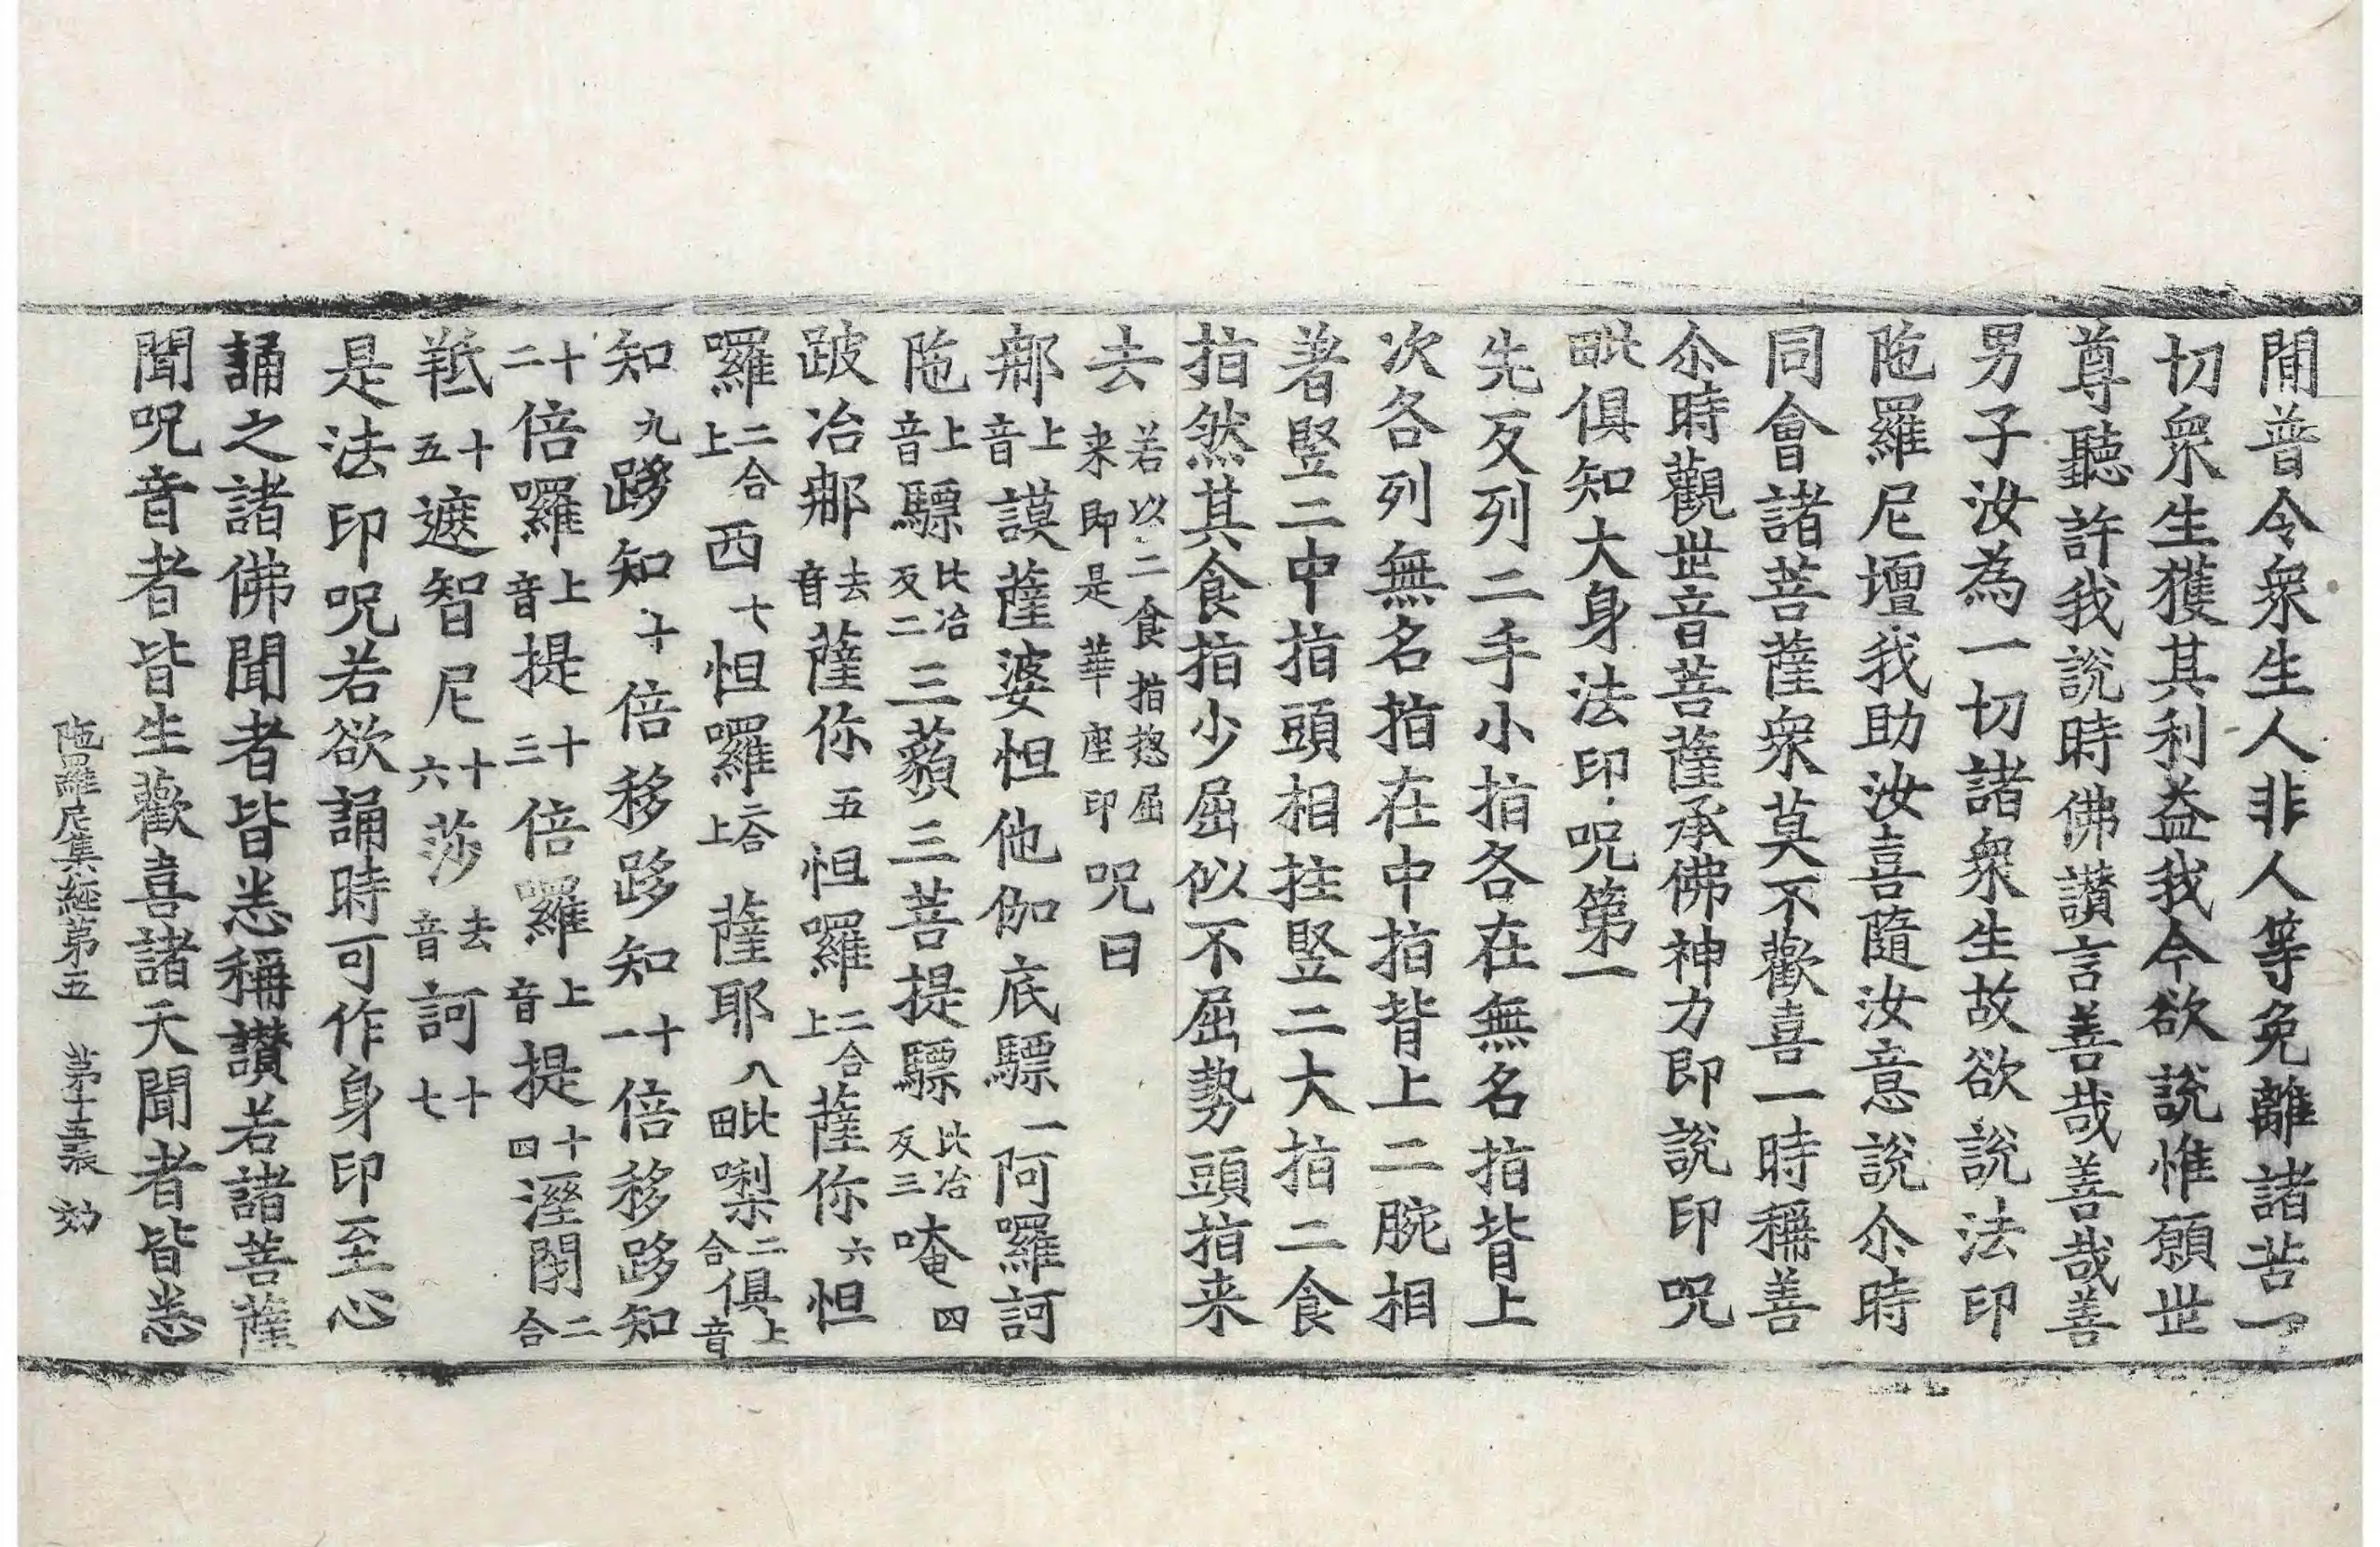 閒普令衆生人非人等免離諸苦一
切衆生獲其利益我今欲說惟願世
尊聽許我說時佛讃言善哉善哉善
男子汝為一切諸衆生故欲說法印
陁羅尼壇我助汝喜隨汝意說尒時
同會諸菩薩衆莫不歡喜一時稱善
尒時觀世音菩薩承佛神力即說印呪
毗俱知大身法印呪第一
先反列二手小指各在無名指背上
次各列無名指在中指背上二腕相
著竪二中指頭相拄竪二大指二食
指然其食指少屈似不屈勢頭指来
去若以二食指揔屈来即是華座印呪曰
那上音謨薩婆怛他伽底驃一阿羅訶
陁上音驃比冶反二三藐三菩提驃比冶反三唵四
跛冶那去音薩你五怛囉二合上薩你六怛
囉二合上西七怛囉二合上薩耶八毗㗚二合俱上音
知九跢知十倍移跢知十一倍移跢知
十二倍囉上音提十三倍囉上音提十四溼閇二合
羝十五遮智尼十六莎去音訶十七
是法印呪若欲誦時可作身印至心
誦之諸佛聞者皆悉稱讃若諸菩薩
聞呪音者皆生歡喜諸天聞者皆悉
陁羅尼集經第五 第十五張 効